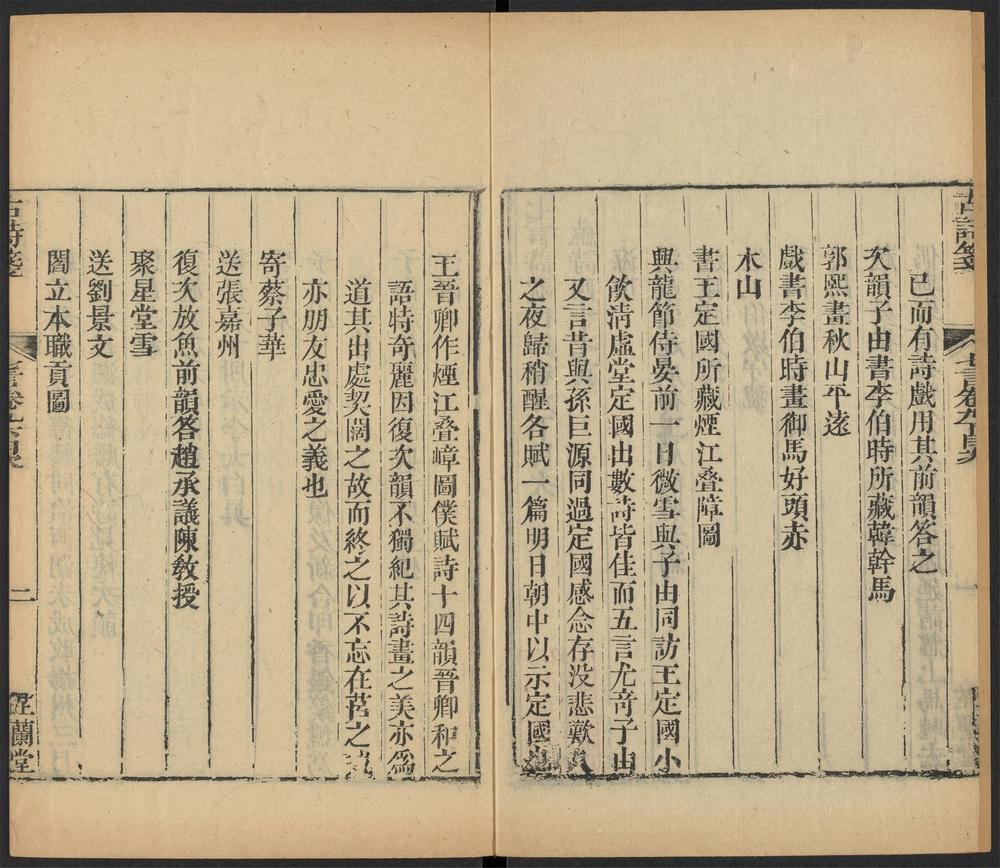 已而有詩戲用其前韻答之
次韻子由書李伯時所藏韓幹馬
郭熙畫秋山平遠
戲書李伯時畫御馬好頭赤
木山
書王定國所藏煙江疊嶂圖
興龍節侍晏前一日微雪與子由同訪王定國小
飲清虛堂定國出數詩皆佳而五言尤奇子由
又言昔與孫巨源同過定國感念存没悲歎久
之夜歸稍醒各賦一篇明日朝中以示定國也
王晉卿作煙江疊嶂圖僕賦詩十四韻晉卿和之
語特奇麗因復次韻不獨紀其詩畫之美亦爲
道其出處契闊之故而終之以不忘在莒之
亦朋友忠愛之義也
寄蔡子華
送張嘉州
復次放魚前韻答趙承議陳敎授
聚星堂雪
送劉景文
閻立本職貢圖
古詩箋
二
芷蘭堂